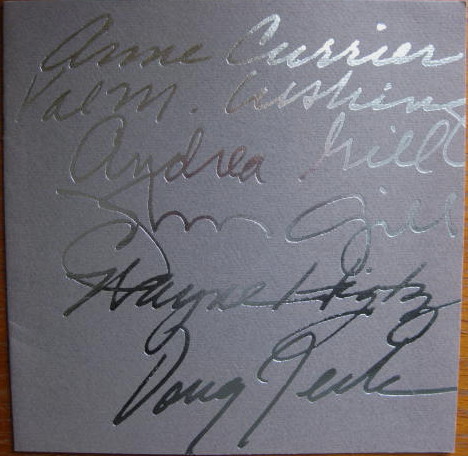 Anne Currier
Val M. Cushing
Andrea Gill
John Gill
Wayne Higby
Doug Jeck